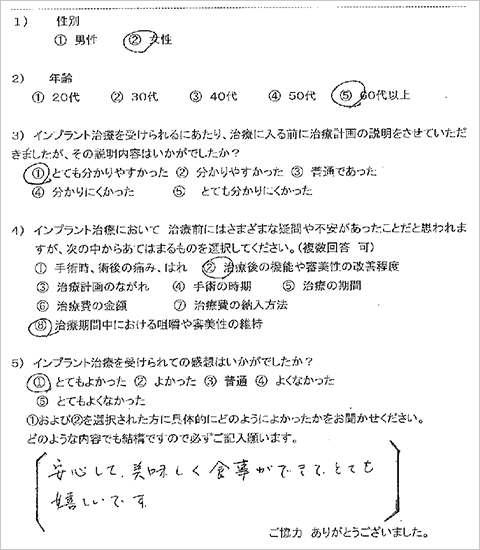 1) 性別
① 男性 ② 女性
2) 年齢
① 20代 ② 30代 ③ 40代 ④ 50代 ⑤ 60代以上
3) インプラント治療を受けられるにあたり、治療に入る前に治療計画の説明をさせていただ
きましたが、その説明内容はいかがでしたか?
① とても分かりやすかった ② 分かりやすかった ③ 普通であった
④ 分かりにくかった ⑤ とても分かりにくかった
4) インプラント治療において 治療前にはさまざまな疑問や不安があったことだと思われま
すが、次の中からあてはまるものを選択してください。(複数回答 可)
① 手術時、術後の痛み、はれ ② 治療後の機能や審美性の改善程度
③ 治療計画のながれ ④ 手術の時期 ⑤ 治療の期間
⑥ 治療費の金額 ⑦ 治療費の納入方法
⑧ 治療期間中における咀嚼や審美性の維持
5) インプラント治療を受けられての感想はいかがでしたか?
① とてもよかった ② よかった ③ 普通 ④ よくなかった
⑤ とてもよくなかった
①および②を選択された方に具体的にどのようによかったかをお聞かせください。
どのような内容でも結構ですので必ずご記入願います。
安心して、美味しく食事ができて、とても
嬉しいです
ご協力 ありがとうございました。